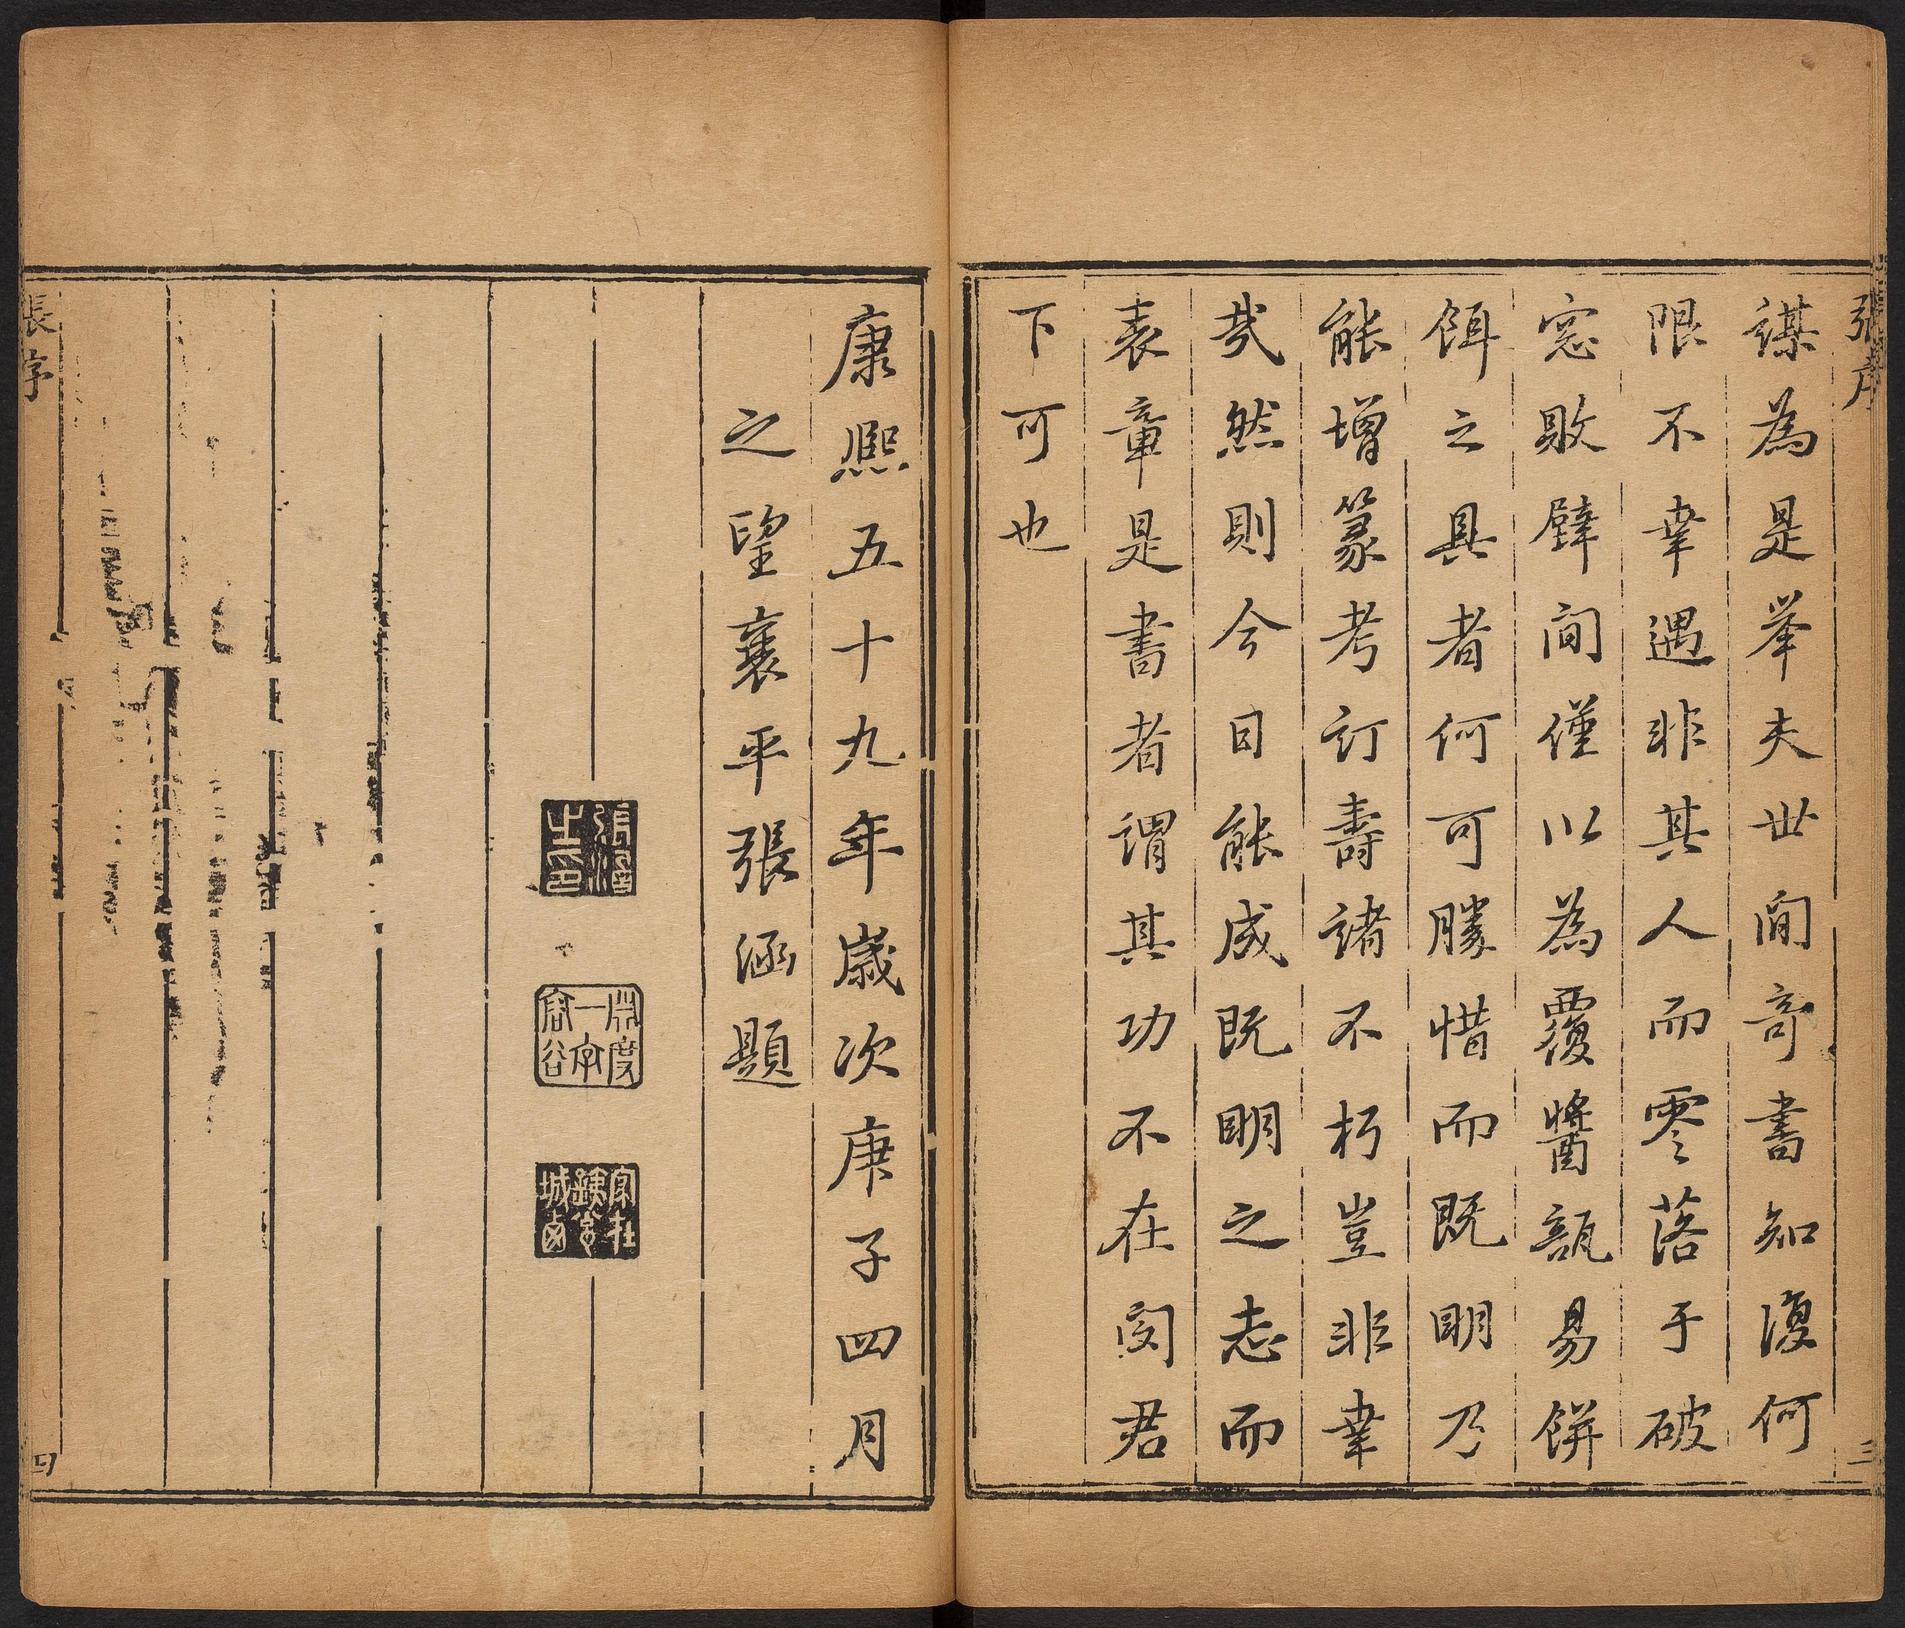 張序
謀為是舉夫世間奇書知復何
限不幸遇非其人而零落于破
窓敗壁間僅以為覆醬瓿易餅
餌之具者何可勝惜而既明乃
能增篆考訂壽諸不朽豈非幸
哉然則今日能成既明之志而
表章是書者謂其功不在閔君
下可也
三
康熙五十九年歲次庚子四月
之望襄平張涵題
張涵之印
一字容谷
張序
四